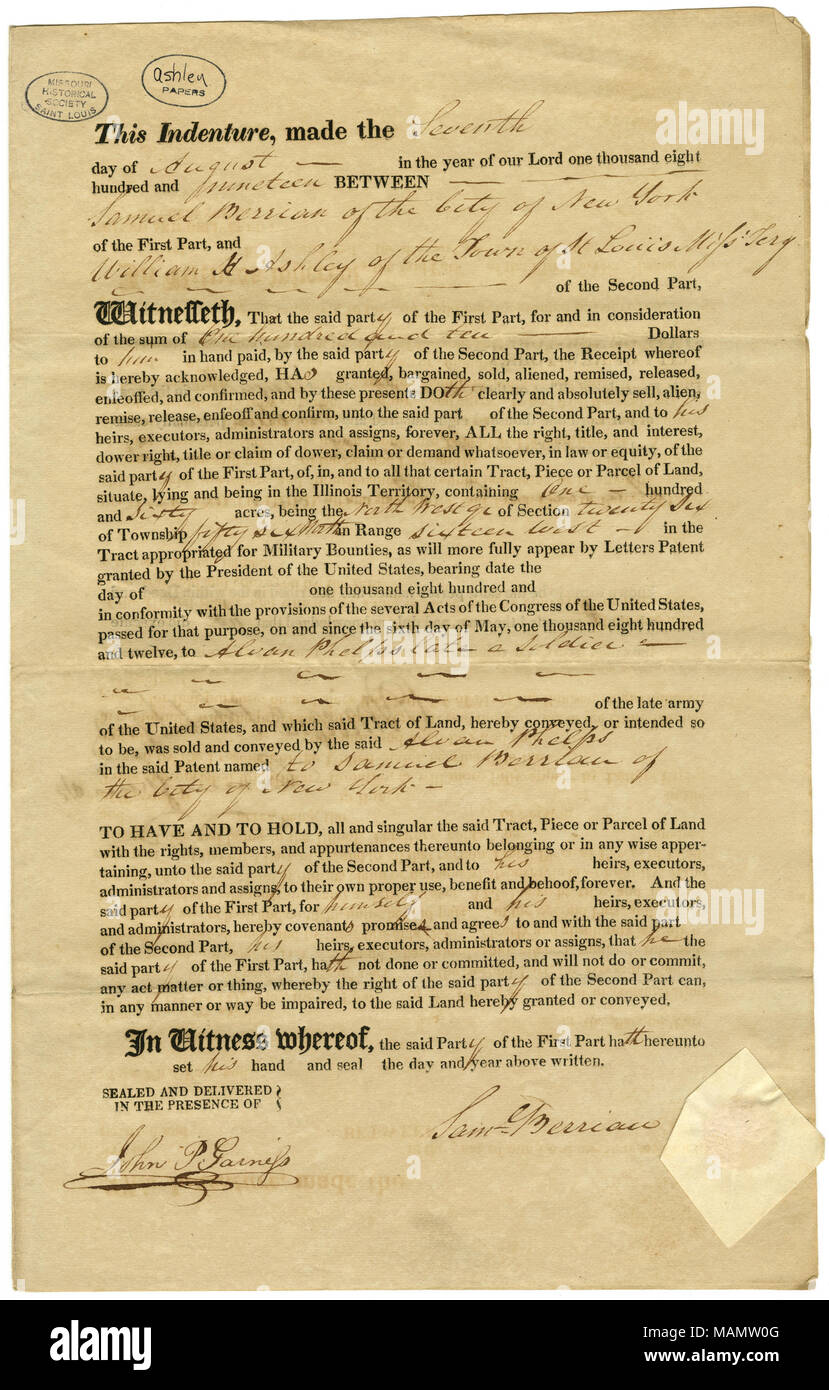 MISSOURI
HISTORICAL
SOCIETY
SAINT LOUIS
Ashley
PAPERS
This Indenture, made the Seventh
day of August — in the year of our Lord one thousand eight
hundred and nineteen BETWEEN
Samuel Berrian of the City of New York
of the First Part, and
William H Ashley of the Town of St Louis Missi Tery
of the Second Part,
Witnesseth, That the said party of the First Part, for and in consideration
of the sum of One hundred and ten — Dollars
to him in hand paid, by the said party of the Second Part, the Receipt whereof
is hereby acknowledged, HAS granted, bargained, sold, aliened, remised, released,
enfeoffed, and confirmed, and by these presents DOth clearly and absolutely sell, alien,
remise, release, enfeoff and confirm, unto the said part of the Second Part, and to his
heirs, executors, administrators and assigns, forever, ALL the right, title, and interest,
dower right, title or claim of dower, claim or demand whatsoever, in law or equity, of the
said party of the First Part, of, in, and to all that certain Tract, Piece or Parcel of Land,
situate, lying and being in the Illinois Territory, containing One — hundred
and Sixty acres, being the North West qr of Section twenty Six
of Township fifty six North in Range sixteen West — in the
Tract appropriated for Military Bounties, as will more fully appear by Letters Patent
granted by the President of the United States, bearing date the
day of one thousand eight hundred and
in conformity with the provisions of the several Acts of the Congress of the United States,
passed for that purpose, on and since the sixth day of May, one thousand eight hundred
and twelve, to Alvan Phelps late a Soldier —
of the late army
of the United States, and which said Tract of Land, hereby conveyed, or intended so
to be, was sold and conveyed by the said Alvan Phelps
in the said Patent named to Samuel Berrian of
the City of New York —
TO HAVE AND TO HOLD, all and singular the said Tract, Piece or Parcel of Land
with the rights, members, and appurtenances thereunto belonging or in any wise apper-
taining, unto the said party of the Second Part, and to his heirs, executors,
administrators and assigns, to their own proper use, benefit and behoof, forever. And the
said party of the First Part, for himself and his heirs, executors,
and administrators, hereby covenants promises and agrees to and with the said part
of the Second Part, his heirs, executors, administrators or assigns, that he the
said party of the First Part, hath not done or committed, and will not do or commit,
any act matter or thing, whereby the right of the said party of the Second Part can,
in any manner or way be impaired, to the said Land hereby granted or conveyed.
In Witness whereof, the said Party of the First Part hath hereunto
set his hand and seal the day and year above written.
SEALED AND DELIVERED
IN THE PRESENCE OF
Saml Berrian
John P. Garniss
alamy
alamy
alamy
Image ID: MAMW0G
www.alamy.com